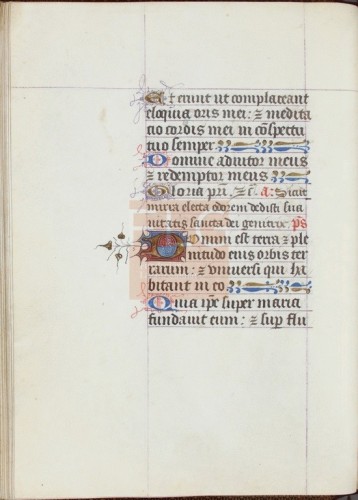 Et erunt ut complaceant
eloquia oris mei: ⁊ medita
cio cordis mei in cōspectu
tuo semper
Domine adiutor meus
⁊ redemptor meus
Gloria pri. ⁊ c̄. a: Sicut
mirra electa odorem dedisti sua
uitatis sancta dei genitrix. ps
Domini est terra ⁊ ple
nitudo eius orbis ter
rarum: ⁊ vniuersi qui ha
bitant in eo
Quia ipē super maria
fundauit eum: ⁊ sup flu